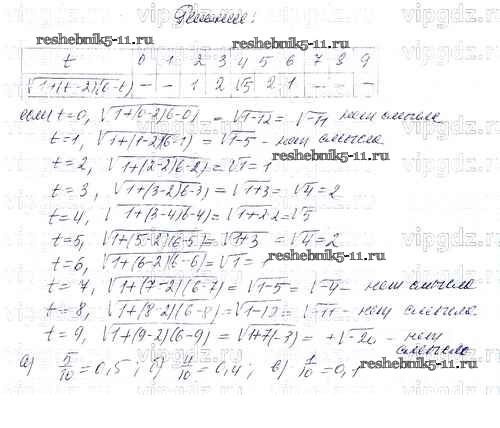 Решение:
reshebnik5-11.ru
t 0 1 2 3 4 5 6 7 8 9
√1+(t-2)(6-t) - - 1 2 √5 2 1 - - -
если t=0, √1+(0-2)(6-0) = √1-12 = √-11 нет смысла
t=1, √1+(1-2)(6-1) = √1-5 - нет смысла.
t=2, √1+(2-2)(6-2) = √1 = 1
t=3, √1+(3-2)(6-3) = √1+3 = √4 = 2
t=4, √1+(3-4)(6-4) = √1+2·2 = √5
t=5, √1+(5-2)(6-5) = √1+3 = √4 = 2
t=6, √1+(6-2)(6-6) = √1 = 1
t=7, √1+(7-2)(6-7) = √1-5 = √-4 - нет смысла
t=8, √1+(8-2)(6-8) = √1-12 = √-11 - нет смысла.
t=9, √1+(9-2)(6-9) = √1+7(-3) = √-20 - нет смысла
а) 5/10 = 0,5; б) 4/10 = 0,4; в) 1/10 = 0,1
reshebnik5-11.ru
reshebnik5-11.ru
reshebnik5-11.ru
reshebnik5-11.ru
vipgdz.ru